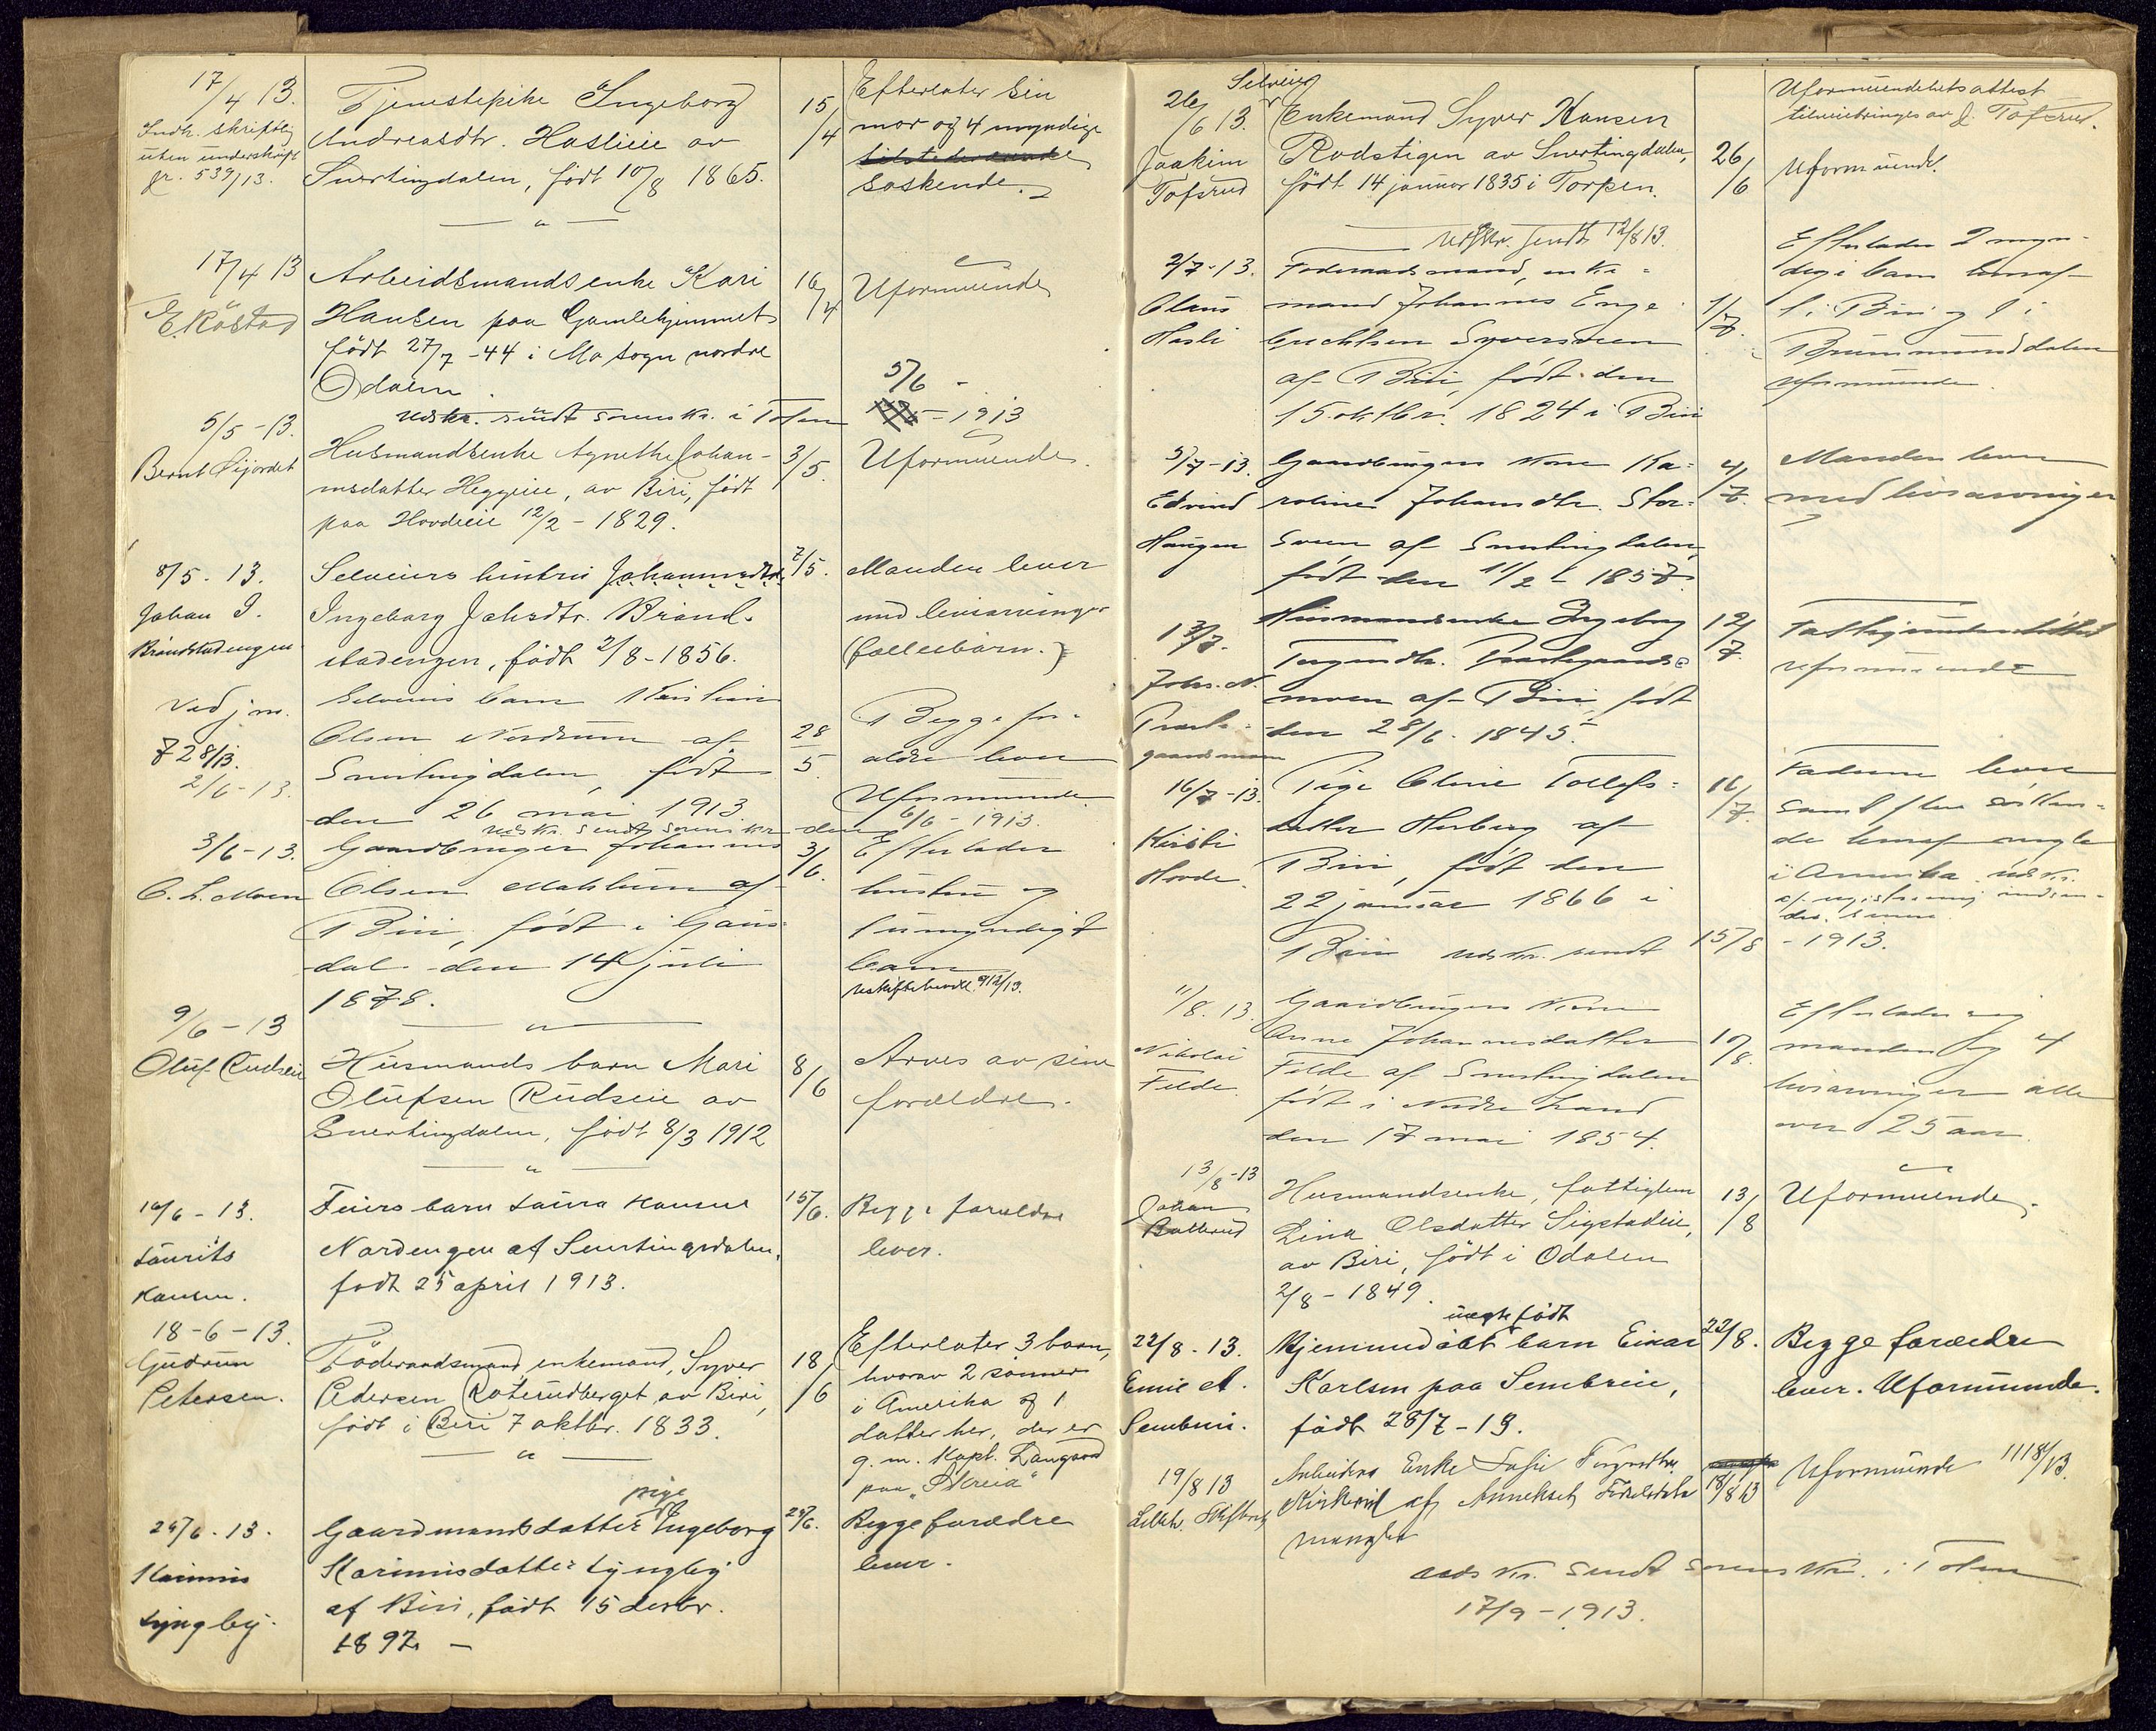 17/4 13.
Indb. skriftlig
uten underskrift
jr. 539/13.
Tjenestepike Ingeborg
Andreasdtr. Haslieie av
Snertingdalen, født 10/8 1865.
15/4
Efterlater sin
mor og 4 myndige
søskende.
17/4 13
E. Røstad
Arbeidsmandsenke Kari
Hansen paa Gamlehjemmet
født 27/7 -44 i Mo sogn nordre
Odalen.
16/4
Uformuende
Udskr. sendt sorenskr. i Toten
5/6 - 1913
5/5 -13.
Bernt Øijordet
Husmandsenke Agnethe Johan-
nesdatter Heggeie, av Biri, født
paa Hovdeeie 12/2 - 1829.
3/5.
Uformuende.
8/5. 13.
Johan J.
Brændstadengen
Selveiers hustru Johannesdtr.
Ingeborg Johsdtr. Brænd-
stadengen, født 2/8 - 1856.
7/5.
Manden lever
med livsarvinger
(fællesbarn.)
Ved jnr.
728/13.
2/6 -13.
Selveiers barn Kristian
Olsen Nordrum af
Snertingdalen, født
den 26 mai 1913
28/5.
Begge for-
ældre lever
Uformuende
udskr. sendt sorenskr den 6/6 - 1913.
3/6 -13.
O. L. Moen
Gaardbruger Johannes
Olsen Mæhlum af
Biri, født i Gaus-
dal den 14 juli
1878.
3/6.
Efterlader
hustru og
1 umyndigt
barn
Uskiftebevill. 912/13.
9/6 -13
Oluf Rudseie
Husmands barn Mari
Olufsen Rudseie av
Snertingdalen, født 8/3 1912
8/6
Arves av sine
forældre.
16/6 - 13.
Laurits
Hansen.
Feiers barn Laura Hansen
Nordengen af Snertingsdalen,
født 25 april 1913.
15/6.
Begge forældre
lever.
18-6-13.
Gudrun
Petersen.
Føderaadsmand, enkemand, Syver
Pedersen Roterudberget av Biri,
født i Biri 7 oktbr. 1833.
18/6
Efterlater 3 barn,
hvorav 2 sønner
i Amerika og 1
datter her, der er
g. m. Kapt. Langaard
paa "Skreia"
24/6. 13.
Karinius
Lyngby.
pige
Gaardmandsdatter Ingeborg
Kariniusdatter Lyngby
af Biri, født 15 decbr.
1892 -
24/6.
Begge forældre
lever.
26/6 13.
Joakim
Tofsrud
Selveier
Enkemand Syver Hansen
Rodstigen av Snertingdalen,
født 14 januar 1835 i Torpen.
26/6
Uformuendehetsattest
tilveiebringes av J. Tofsrud.
Uformuende.
Udskr. sendt 12/8 13.
2/7 -13.
Olaus
Hasli
Føderaadsmand, enke-
mand Johannes Enge-
brechtsen Syversveen
af Biri, født den
15 oktbr. 1824 i Biri
1/7.
Efterlader 2 myn-
dige barn hvoraf
1 i Biri og 1 i
Brummunddalen
uformuende.
5/7 -13.
Edvind
Haugen
Gaardbrugers kone Ka-
roline Johansdtr. Stor-
sveen af Snertingdalen,
født den 11/2 1857.
4/7.
Manden lever
med livsarvinger
13/7.
Johs. N.
Præste-
gaardsmoen
Husmandsenke Ingeborg
Præstegaards-
moen af Biri, født
den 28/6. 1845.
12/7.
Fattigunderstøttet
uformuende
16/7 -13.
Kristi
Hovde.
Pige Oline Tollefs-
datter Herberg af
Biri, født den
22 januar 1866 i
Biri
16/7.
Faderen lever
samt flere søsken-
de hvoraf nogle
i Amerika. udskr.
af registrering indsen-
des senere
udskr. sendt 15/8 - 1913.
11/8. 13.
Nikolai
Felde.
Gaardbrugers kone
Anne Johannesdatter
Felde af Snertingdalen
født i Nordre Land
den 17 mai 1854.
10/8.
Efterlader sig
manden og 4
livsarvinger alle
over 25 aar.
13/8 -13
Johan
Ballerud
Husmandsenke, fattiglem
Lina Olsdatter Sigstadeie,
av Biri, født i Odalen
2/8 - 1849.
13/8
Uformuende.
22/8 - 13.
Emil A.
Sembeie.
uegte født
Hjemmedøbt barn Einar
Karlsen paa Sembeie,
født 28/7 - 13.
22/8.
Begge forældre
lever. Uformuende.
19/8 13
Arbeiders Enke
af Annekset
mangler
18/8 13
Uformuende 1118/13.
udskr. sendt sorenskr. i Toten
17/9 - 1913.